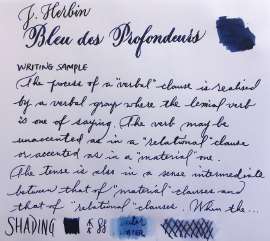 J. Herbin
Bleu des Profondeurs
WRITING SAMPLE
The process of a "verbal" clause is realised
by a verbal group where the lexical verb
is one of saying. The verb may be
unaccented as in a "relational" clause
or accented as in a "material" one.
The tense is also in a sense intermediate
between that of "material" clauses and
that of "relational" clauses. When the...
SHADING water